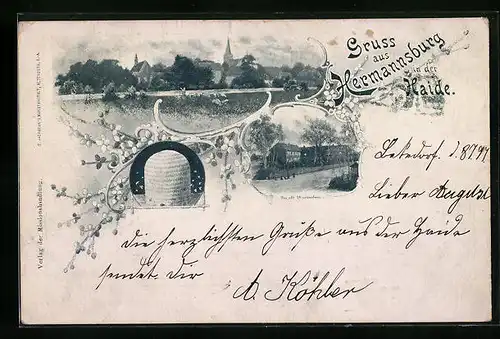 Gruss
aus
Hermannsburg
in der
Haide.
1.8.97.
Lieber August
Die herzlichsten Grüße aus der Haide
sendet dir
A. Köhler
Verlag der Missionshandlung.